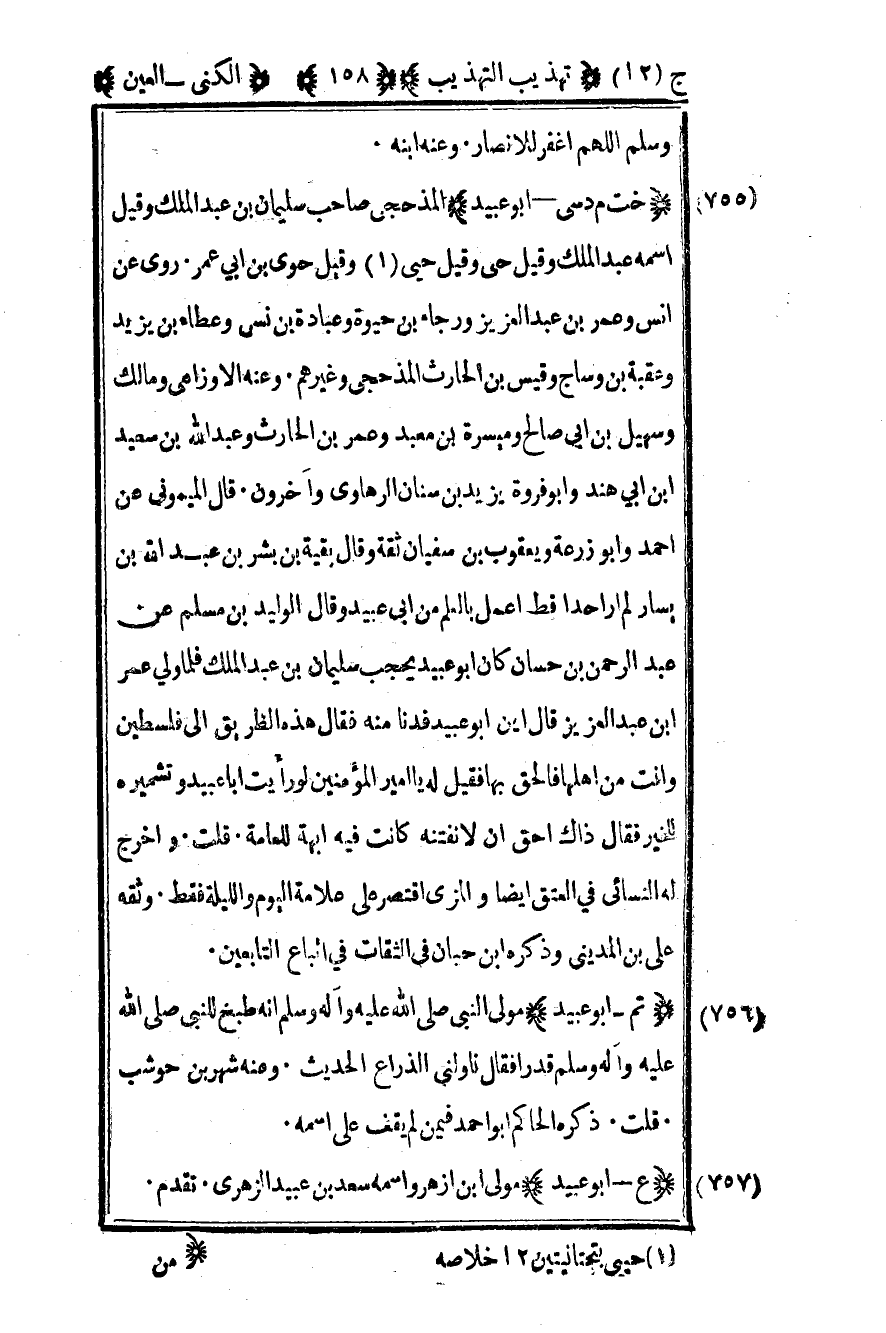 ج (١٢) ﴿ تهذيب التهذيب ﴾ ﴿ ١٥٨ ﴾ ﴿ الكنى ـ العين ﴾
وسلم اللهم اغفر للانصار· وعنه ابنه ·
(٧٥٥) ﴿ خت م د سى — ابو عبيد ﴾ المذحجى صاحب سليمان بن عبد الملك وقيل
اسمه عبد الملك وقيل حى وقيل حيى (١) وقيل حوى بن ابي عمر· روى عن
انس وعمر بن عبد العزيز ورجاء بن حيوة وعبادة بن نسى وعطاء بن يزيد
وعقبة بن وساج وقيس بن الحارث المذحجى وغيرهم· وعنه الاوزاعى ومالك
وسهيل بن ابي صالح وميسرة بن معبد وعمر بن الحارث وعبد الله بن سعيد
ابن ابي هند وابو فروة يزيد بن سنان الرهاوى وآخرون· قال الميمونى عن
احمد وابو زرعة ويعقوب بن سفيان ثقة وقال بقية بن بشر بن عبد الله بن
يسار لم ار احدا قط اعمل بالعلم من ابى عبيد وقال الوليد بن مسلم عن
عبد الرحمن بن حسان كان ابو عبيد يحجب سليمان بن عبد الملك فلما ولي عمر
ابن عبد العزيز قال اين ابو عبيد فدنا منه فقال هذه الطريق الى فلسطين
وانت من اهلها فالحق بها فقيل له يا امير المؤمنين لو رأيت ابا عبيد و تشميره
للخير فقال ذاك احق ان لا نفتنه كانت فيه ابهة للعامة· قلت· و اخرج
له النسائى في العتق ايضا و المزى اقتصر على علامة اليوم والليلة فقط· وثقه
على بن المديني وذكره ابن حبان فى الثقات في اتباع التابعين·
(٧٥٦) ﴿ تم ـ ابو عبيد ﴾ مولى النبى صلى الله عليه وآله وسلم انه طبخ للنبى صلى الله
عليه وآله وسلم قدرا فقال ناولني الذراع الحديث · وعنه شهر بن حوشب
· قلت· ذكره الحاكم ابو احمد فيمن لم يقف على اسمه·
(٧٥٧) ﴿ ع — ابو عبيد ﴾ مولى ابن ازهر واسمه سعد بن عبيد الزهرى· تقدم·
(١) حيى بتحتانيتين ١٢ خلاصه
﴿ من